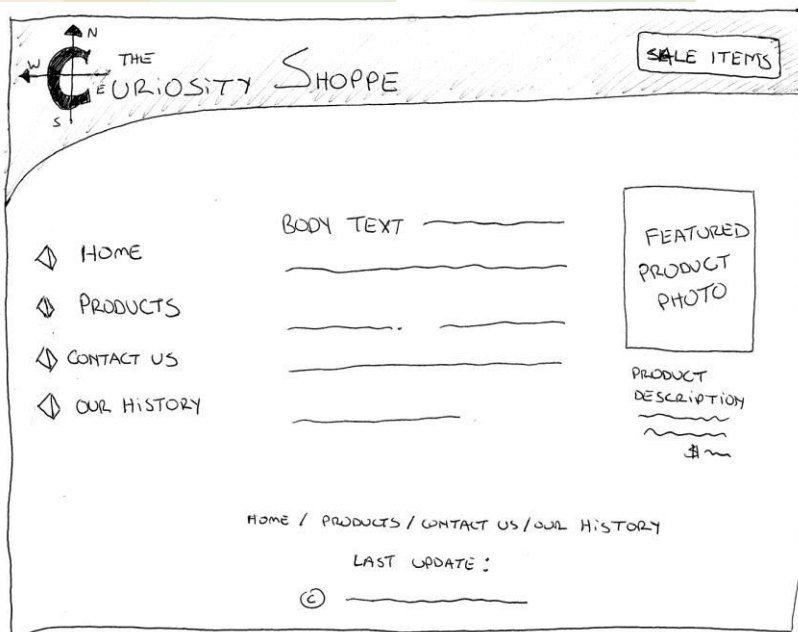 N
W
E
S
THE
CURIOSITY SHOPPE
SALE ITEMS
HOME
PRODUCTS
CONTACT US
OUR HISTORY
BODY TEXT
FEATURED
PRODUCT
PHOTO
PRODUCT
DESCRIPTION
$
HOME / PRODUCTS / CONTACT US / OUR HISTORY
LAST UPDATE :
©